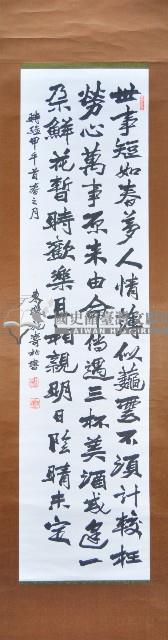 世事短如春夢人情薄似雲不須計較枉
勞心萬事原來由命偶遇三杯美酒或逢一
朶鮮花暫時歡樂且相親明日陰晴未定
時維甲午首春之月
書
國史館臺灣文獻館